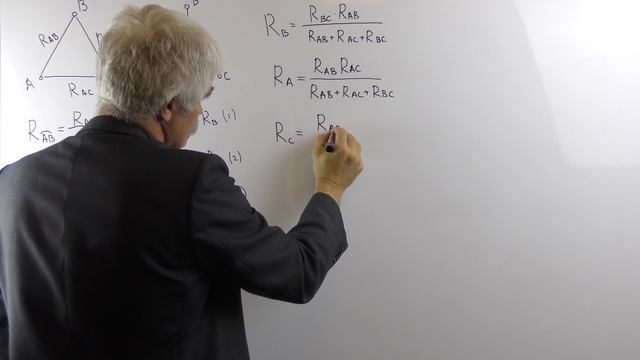 B
B
R_AB
A
R_AC
C
R_AB =
R_B (1)
(2)
R_B = R_BC · R_AB / R_AB + R_AC + R_BC
R_A = R_AB R_AC / R_AB + R_AC + R_BC
R_C = R_A